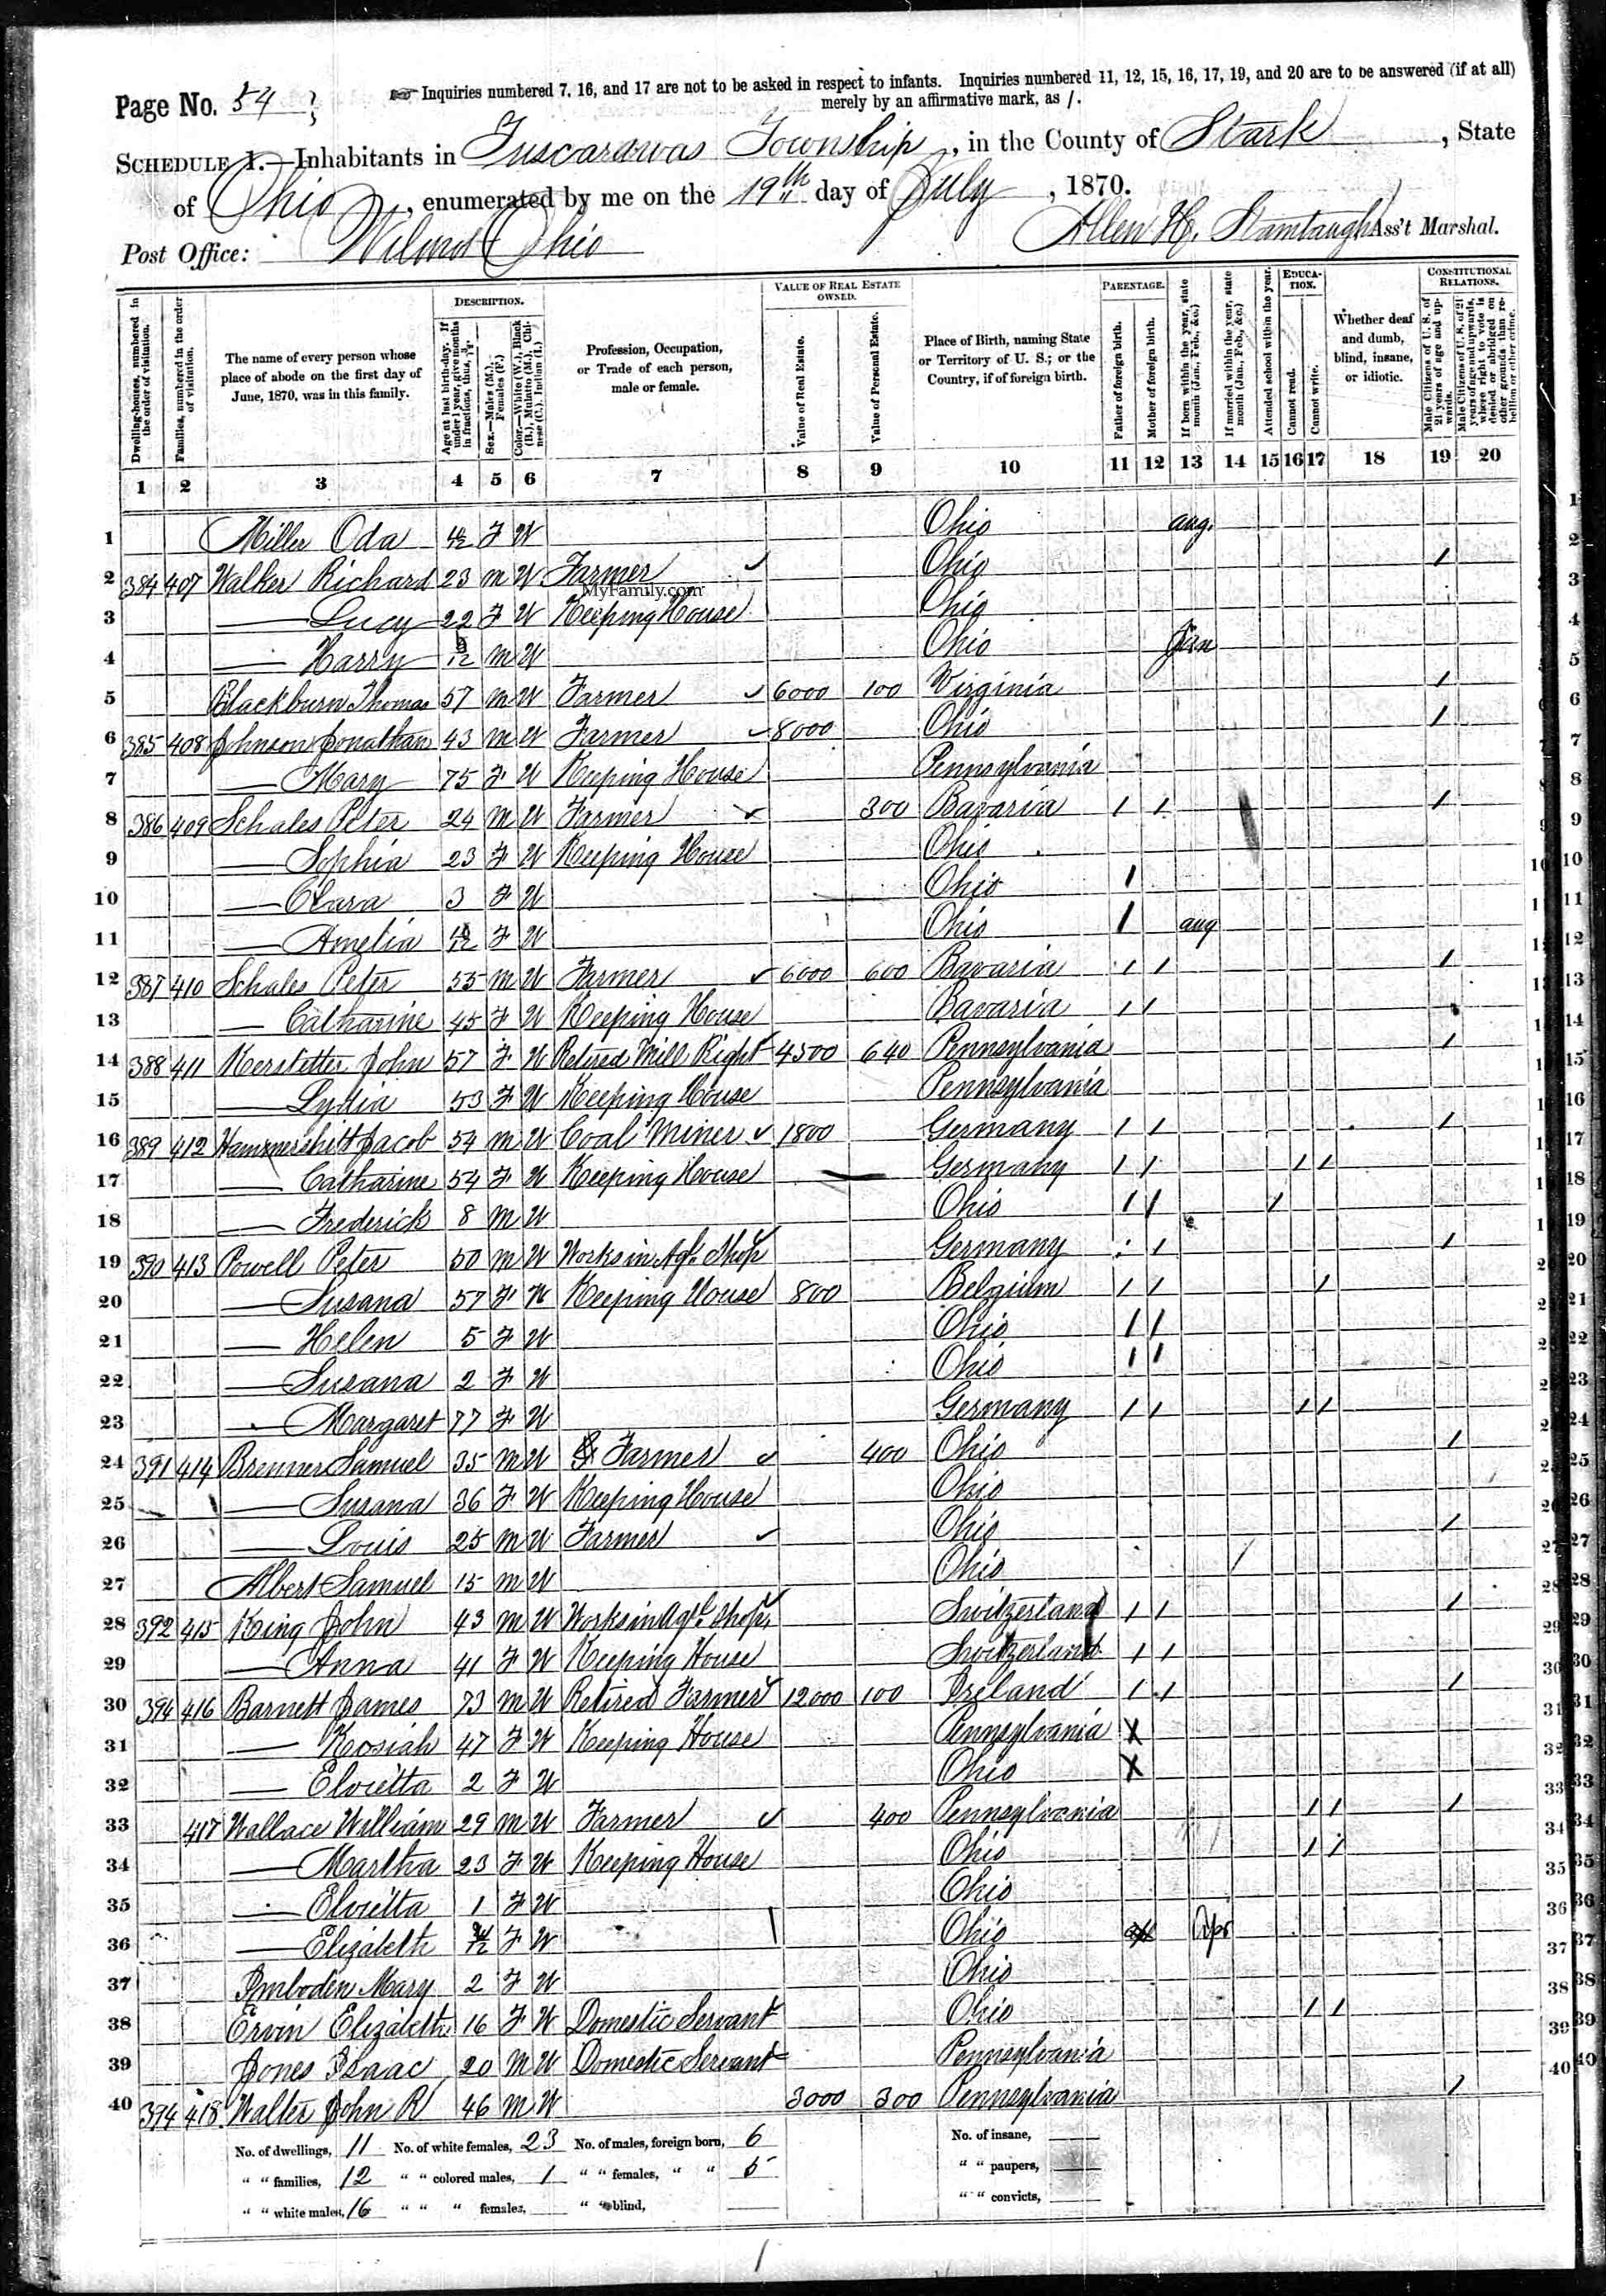 Page No. 54
☞ Inquiries numbered 7, 16, and 17 are not to be asked in respect to infants. Inquiries numbered 11, 12, 15, 16, 17, 19, and 20 are to be answered (if at all)
merely by an affirmative mark, as /.
SCHEDULE 1.—Inhabitants in Tuscarawas Township, in the County of Stark, State
of Ohio, enumerated by me on the 19th day of July, 1870.
Post Office: Wilmot Ohio
Allen H. Stambaugh Ass't Marshal.
Dwelling-houses, numbered in the order of visitation.
Families, numbered in the order of visitation.
The name of every person whose place of abode on the first day of June, 1870, was in this family.
DESCRIPTION.
Age at last birth-day. If under 1 year, give months in fractions, thus, 3/12
Sex.—Males (M.), Females (F.)
Color.—White (W.), Black (B.), Mulatto (M.), Chinese (C.), Indian (I.)
Profession, Occupation, or Trade of each person, male or female.
VALUE OF REAL ESTATE OWNED.
Value of Real Estate.
Value of Personal Estate.
Place of Birth, naming State or Territory of U. S.; or the Country, if of foreign birth.
PARENTAGE.
Father of foreign birth.
Mother of foreign birth.
If born within the year, state month (Jan., Feb., &c.)
If married within the year, state month (Jan., Feb., &c.)
Attended school within the year.
EDUCATION.
Cannot read.
Cannot write.
Whether deaf and dumb, blind, insane, or idiotic.
CONSTITUTIONAL RELATIONS.
Male Citizens of U. S. of 21 years of age and upwards.
Male Citizens of U. S. of 21 years of age and upwards, whose right to vote is denied or abridged on other grounds than rebellion or other crime.
1 2 3 4 5 6 7 8 9 10 11 12 13 14 15 16 17 18 19 20
1 Miller Oda F W Ohio aug.
2 384 407 Walker Richard 23 M W Farmer Ohio /
MyFamily.com
3 — Lucy 22 F W Keeping House Ohio
4 — Harry M W Ohio Jan
5 Blackburn Thomas 57 M W Farmer 6000 100 Virginia /
6 385 408 Johnson Jonathan 43 M W Farmer 8000 Ohio /
7 — Mary 75 F W Keeping House Pennsylvania
8 386 409 Schales Peter 24 M W Farmer 300 Bavaria / / /
9 — Sophia 23 F W Keeping House Ohio
10 — Clara 3 F W Ohio /
11 — Amelia F W Ohio / aug
12 387 410 Schales Peter 55 M W Farmer 6000 600 Bavaria / / /
13 — Catharine 45 F W Keeping House Bavaria / /
14 388 411 Kerstetter John 57 F W Retired Mill Right 4500 640 Pennsylvania /
15 — Lydia 53 F W Keeping House Pennsylvania
16 389 412 Hammershitt Jacob 54 M W Coal Miner 1800 Germany / / /
17 — Catharine 54 F W Keeping House Germany / / / /
18 — Frederick 8 M W Ohio / / /
19 390 413 Powell Peter 50 M W Works in Agl. Shop Germany / / /
20 — Susana 57 F W Keeping House 800 Belgium / / /
21 — Helen 5 F W Ohio / /
22 — Susana 2 F W Ohio / /
23 — Margaret 77 F W Germany / / / /
24 391 414 Brenner Samuel 35 M W Farmer 400 Ohio /
25 — Susana 36 F W Keeping House Ohio
26 — Louis 25 M W Farmer Ohio /
27 Albert Samuel 15 M W Ohio /
28 392 415 King John 43 M W Works in Agl. Shop Switzerland / / /
29 — Anna 41 F W Keeping House Switzerland / /
30 394 416 Barnett James 73 M W Retired Farmer 12000 100 Ireland / / /
31 — Kosiah 47 F W Keeping House Pennsylvania X
32 — Eloietta 2 F W Ohio X
33 417 Wallace William 29 M W Farmer 400 Pennsylvania / / /
34 — Martha 23 F W Keeping House Ohio / /
35 — Eloietta 1 F W Ohio
36 — Elizabeth F W Ohio Apr
37 Imboden Mary 2 F W Ohio
38 Ervin Elizabeth 16 F W Domestic Servant Ohio / /
39 Jones Isaac 20 M W Domestic Servant Pennsylvania
40 394 418 Walter John R 46 M W 3000 300 Pennsylvania /
No. of dwellings, 11 No. of white females, 23 No. of males, foreign born, 6 No. of insane,
" " families, 12 " " colored males, 1 " " females, " " 5 " " paupers,
" " white males, 16 " " " females, " " blind, " " convicts,